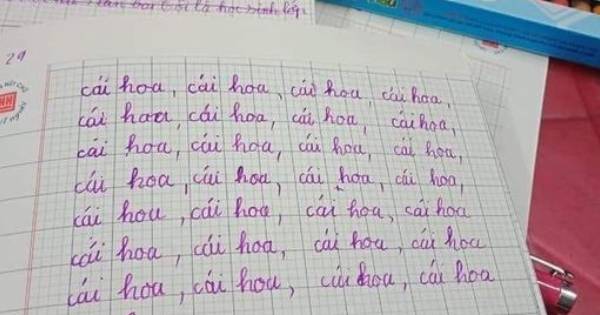 bạn bai tôi là học sinh lớp
29
cái hoa, cái hoa, cái hoa, cái hoa,
cái hoa, cái hoa, cái hoa, cái hoa,
cái hoa, cái hoa, cái hoa, cái hoa,
cái hoa, cái hoa, cái hoa, cái hoa,
cái hou, cái hoa, cái hoa, cái hoa
cái hoa, cái hoa, cái hoa, cái hoa
cái hoa, cái hoa, cái hoa, cái hoa